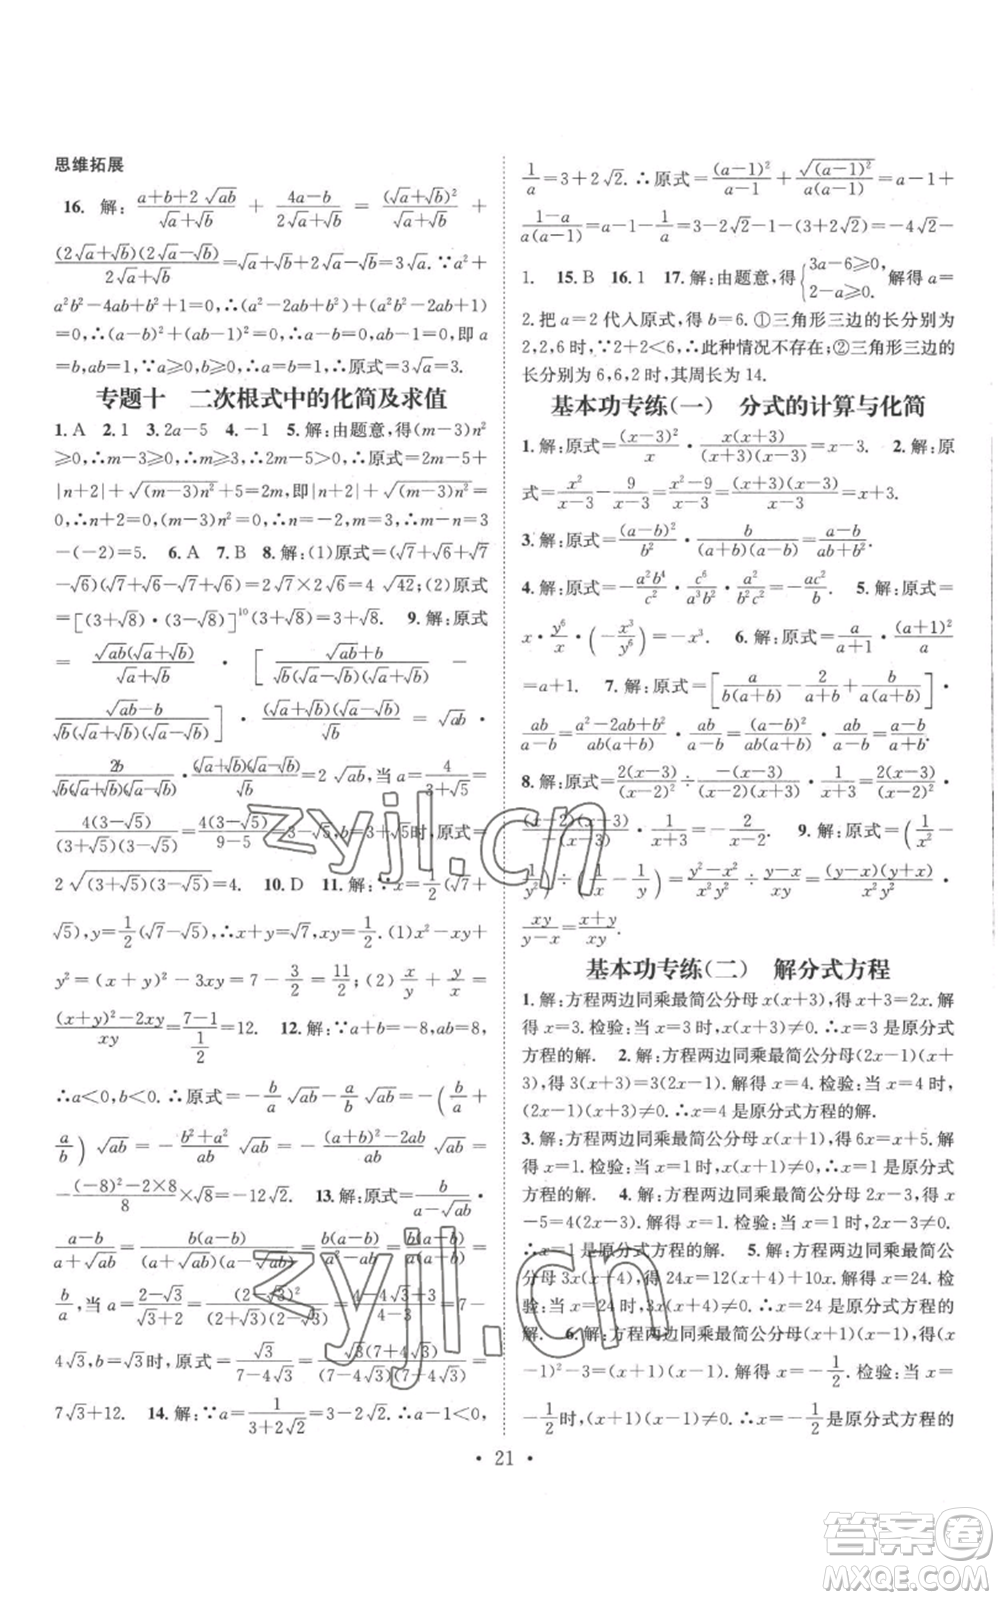 思维拓展
16. 解:(a+b+2√ab)/(√a+√b) + (4a-b)/ = (√a+√b)²/(√a+√b) +
(2√a+√b)(2√a-√b)/(2√a+√b)=√a+√b+2√a-√b=3√a.∵a²+
a²b²-4ab+b²+1=0,∴(a²-2ab+b²)+(a²b²-2ab+1)
=0,∴(a-b)²+(ab-1)²=0.∴a-b=0,ab-1=0,即a
=b,ab=1.∵a≥0,b≥0,∴a=b=1.∴原式=3√a=3.
专题十 二次根式中的化简及求值
1.A 2.1 3.2a-5 4.-1 5.解:由题意,得(m-3)n²
≥0,∴m-3≥0.∴m≥3.∴2m-5>0,∴原式=2m-5+
|n+2|+√(m-3)n²+5=2m,即|n+2|+√(m-3)n²=0.
∴n+2=0,(m-3)n²=0.∴n=-2,m=3.∴m-n=3
-(-2)=5. 6.A 7.B 8.解:(1)原式=(√7+√6+√7
-√6)(√7+√6-√7+√6)=2√7×2√6=4√42;(2)原式
=[(3+√8)·(3-√8)]¹⁰(3+√8)=3+√8. 9.解:原式
= √ab(√a+√b)/(√a+√b) · [(√ab+b)/(√b(√a-√b)(√a+√b)) -
(√ab-b)/(√b(√a+√b)(√a-√b))] · (√a+√b)(√a-√b)/√b = √ab ·
2b/(√b(√a-√b)(√a+√b))·(√a+√b)(√a-√b)/√b=2√ab,当a=4/(3+√5)=
4(3-√5)/((3+√5)(3-√5))=4(3-√5)/(9-5)=3-√5,b=3+√5时,原式=
2√(3+√5)(3-√5)=4. 10.D 11.解:∵x=1/2(√7+
√5),y=1/2(√7-√5),∴x+y=√7,xy=1/2.(1)x²-xy+
y²=(x+y)²-3xy=7-3/2=11/2;(2)x/y+y/x=
((x+y)²-2xy)/xy=(7-1)/(1/2)=12. 12.解:∵a+b=-8,ab=8,
∴a<0,b<0.∴原式=-b/a√ab-a/b√ab=-(b/a+
a/b)√ab=-(b²+a²)/ab √ab=-((a+b)²-2ab)/ab √ab=
-((-8)²-2×8)/8×√8=-12√2. 13.解:原式=b/(a-√ab)·
(a-b)/(a+√ab)=b(a-b)/((a-√ab)(a+√ab))=b(a-b)/(a(a-b))=
b/a,当a=(2-√3)/(√3+2)=(2-√3)²/((2+√3)(2-√3))=(4-4√3+3)/(4-3)=7-
4√3,b=√3时,原式=√3/(7-4√3)=√3(7+4√3)/((7-4√3)(7+4√3))=
7√3+12. 14.解:∵a=1/(3+2√2)=3-2√2.∴a-1<0,
1/a=3+2√2.∴原式=(a-1)²/(a-1)+√(a-1)²/(a(a-1))=a-1+
(1-a)/(a(a-1))=a-1-1/a=3-2√2-1-(3+2√2)=-4√2-
1. 15.B 16.1 17.解:由题意,得{3a-6≥0,2-a≥0.解得a=
2.把a=2代入原式,得b=6.①三角形三边的长分别为
2,2,6时,∵2+2<6,∴此种情况不存在;②三角形三边的
长分别为6,6,2时,其周长为14.
基本功专练(一) 分式的计算与化简
1.解:原式=(x-3)²/x·x(x+3)/((x+3)(x-3))=x-3. 2.解:原
式=x²/(x-3)-9/(x-3)=(x²-9)/(x-3)=(x+3)(x-3)/(x-3)=x+3.
3.解:原式=(a-b)²/b²·b/((a+b)(a-b))=(a-b)/(ab+b²).
4.解:原式=-a²b⁴/c²·c⁶/(a³b²)·a²/(b²c²)=-ac²/. 5.解:原式=
x·y⁶/x·(-x³/y⁶)=-x³. 6.解:原式=a/(a+1)·(a+1)²/a
=a+1. 7.解:原式=[a/(b(a+b))-2/(a+b)+b/(a(a+b))]·
ab/(a-b)=(a²-2ab+b²)/(ab(a+b))·ab/(a-b)=(a-b)²/(ab(a+b))·ab/(a-b)=(a-b)/(a+b).
8.解:原式=2(x-3)/(x-2)÷-(x-3)(x+3)/(x-2)=2(x-3)/(x-2)·
(x-2)/(-(x-3))·1/(x+3)=-2/(x+3). 9.解:原式=(1/x²-
1/y²)÷(1/x-1/y)=(y²-x²)/(x²y²)÷(y-x)/xy=(y-x)(y+x)/(x²y²)·
xy/(y-x)=(x+y)/xy.
基本功专练(二) 解分式方程
1.解:方程两边同乘最简公分母x(x+3),得x+3=2x.解
得x=3.检验:当x=3时,x(x+3)≠0.∴x=3是原分式
方程的解. 2.解:方程两边同乘最简公分母(2x-1)(x+
3),得3(x+3)=3(2x-1).解得x=4.检验:当x=4时,
(2x-1)(x+3)≠0.∴x=4是原分式方程的解.
3.解:方程两边同乘最简公分母(x+1),得6x=x+5.解得
x=1.检验:当x=1时,x+1≠0.∴x=1是原分式
方程的解. 4.解:方程两边同乘最简公分母2x-3,得x
-5=4(2x-3).解得x=1.检验:当x=1时,2x-3≠0.
∴x=1是原分式方程的解. 5.解:方程两边同乘最简公
分母3x(x+4),得24x=23(x+4).解得x=24.
检验:当x=24时,3x(x+4)≠0.∴x=24是原分式方程的
解. 6.解:方程两边同乘最简公分母(x+1)(x-1),得(x
-1)²-x=(x+1)(x-1).解得x=.检验:当x=
时,(x+1)(x-1)≠0.∴x=是原分式方程的
· 21 ·
zyjl.cn
zyjl.cn
答案圈
MXQE.COM